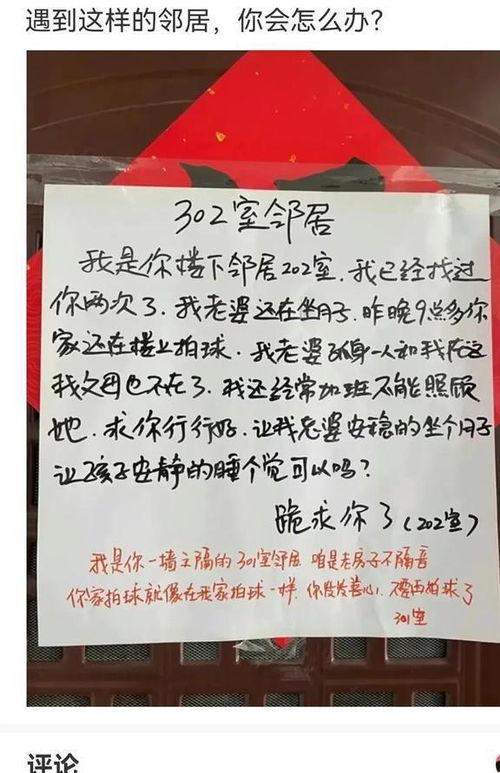 遇到这样的邻居，你会怎么办？
302室邻居
我是你楼下邻居202室.我已经找过
你两次了.我老婆还在坐月子.昨晚9点多你
家还在楼上拍球.我老婆孤身一人和我在这
我父母也不在了.我还经常加班不能照顾
她.求你行行好.让我老婆安稳的坐个月子
让孩子安静的睡个觉可以吗？
跪求你了（202室）
我是你一墙之隔的301室邻居 咱是老房子不隔音
你家拍球就像在我家拍球一样.你发发善心.不要再拍球了
301室
评论